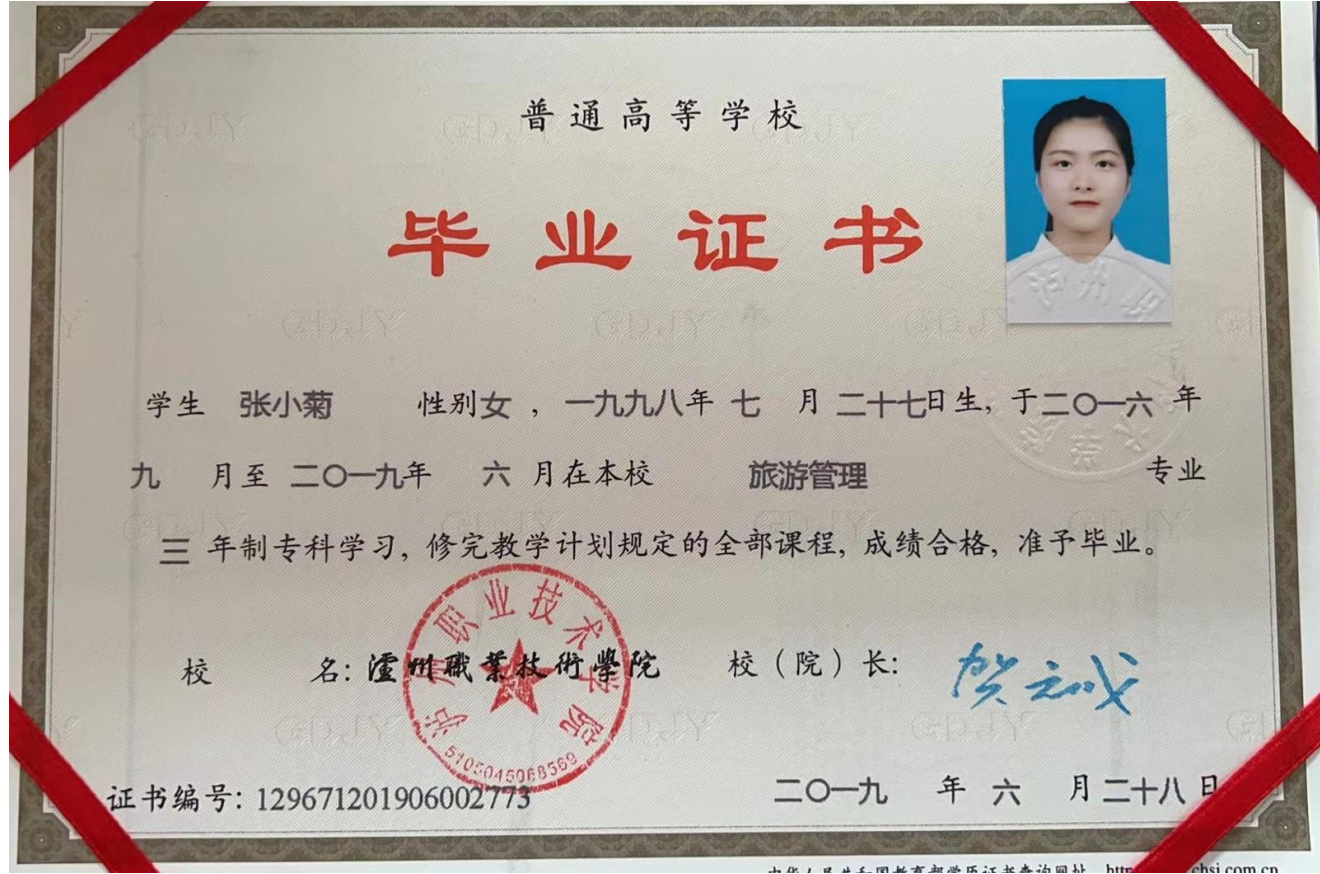 普通高等学校
毕业证书
学生 张小菊 性别女，一九九八年 七 月 二十七日生，于二〇一六 年
九 月至 二〇一九年 六 月在本校 旅游管理 专业
三 年制专科学习，修完教学计划规定的全部课程，成绩合格，准予毕业。
校 名：瀘州職業技術學院 校（院）长：贺元成
泸州职业技术学院
5105045068569
证书编号：129671201906002773 二〇一九 年 六 月二十八日
中华人民共和国教育部学历证书查询网址 chsi.com.cn